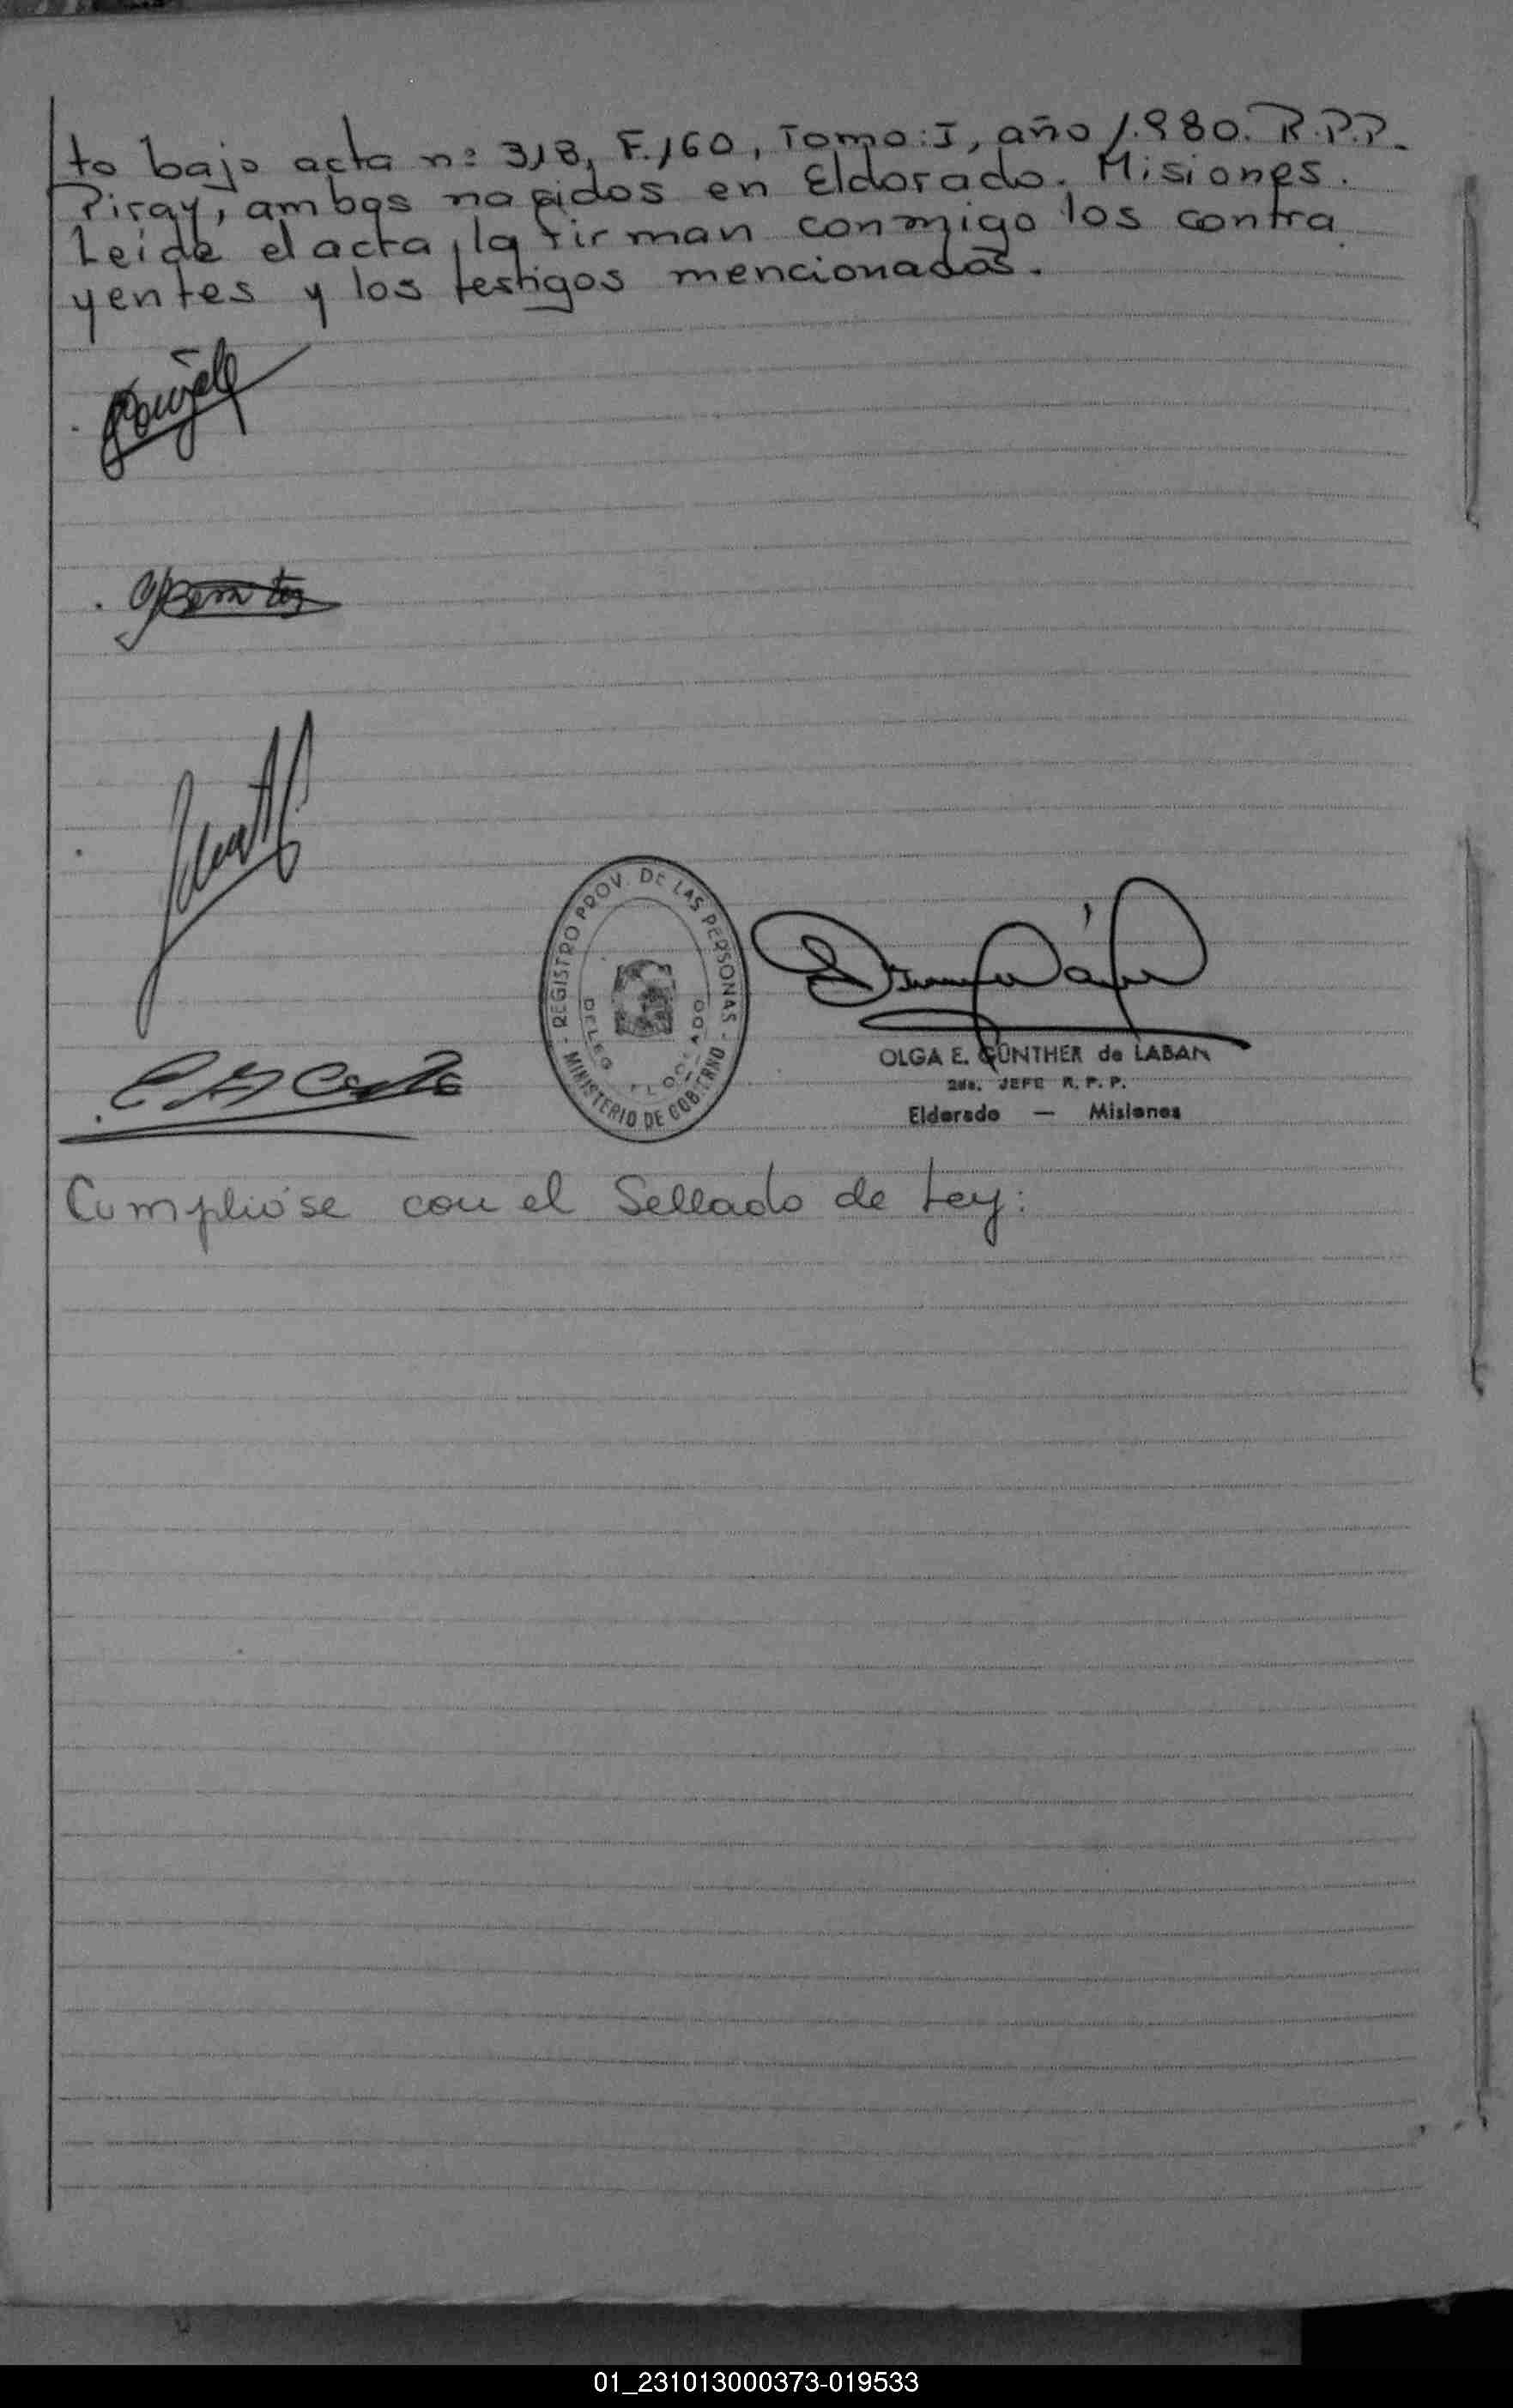 to bajo acta n: 318, F.160, Tomo: I, año 1.980. R.P.P.
Piray, ambos nacidos en Eldorado. Misiones.
Leida el acta, la firman conmigo los contra
yentes y los testigos mencionados.
REGISTRO PROV. DE LAS PERSONAS - MINISTERIO DE GOBIERNO -
OLGA E. GÜNTHER de LABAN
2da. JEFE R. P. P.
Eldorado — Misiones
Cumplióse con el Sellado de Ley:
01_231013000373-019533